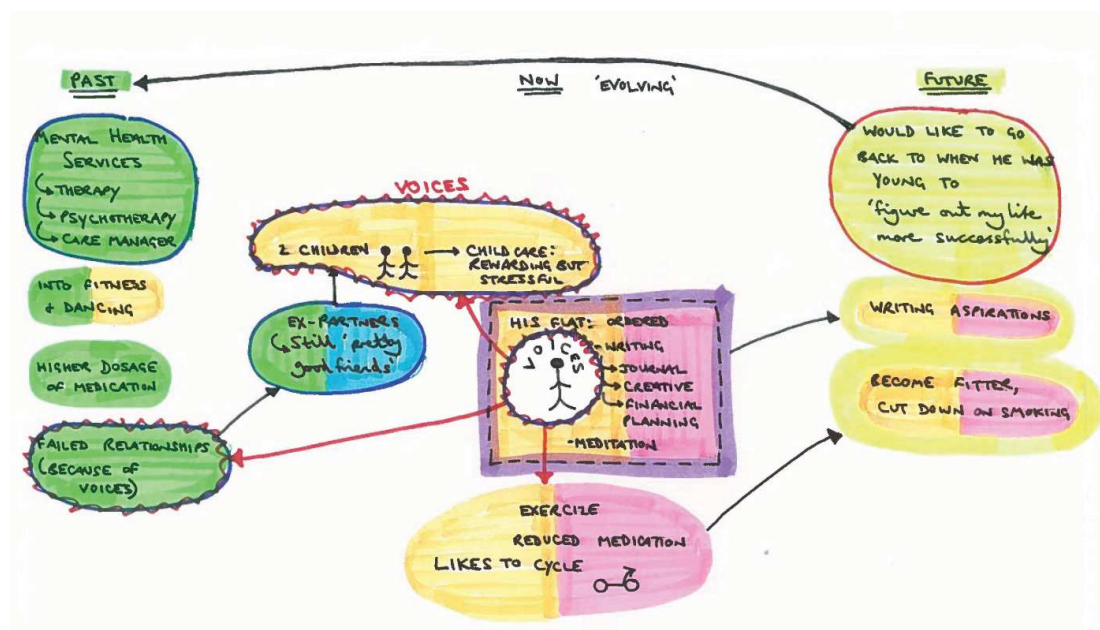 PAST
NOW 'EVOLVING'
FUTURE
MENTAL HEALTH
SERVICES
THERAPY
PSYCHOTHERAPY
CARE MANAGER
INTO FITNESS
& DANCING
HIGHER DOSAGE
OF MEDICATION
FAILED RELATIONSHIPS
(BECAUSE OF
VOICES)
VOICES
2 CHILDREN
CHILDCARE:
REWARDING BUT
STRESSFUL
EX-PARTNERS
Still 'pretty
good friends'
HIS FLAT: ORDERED
-WRITING
JOURNAL
CREATIVE
FINANCIAL
PLANNING
-MEDITATION
VOICES
EXERCIZE
REDUCED MEDICATION
LIKES TO CYCLE
WOULD LIKE TO GO
BACK TO WHEN HE WAS
YOUNG TO
'figure out my life
more successfully'
WRITING ASPIRATIONS
BECOME FITTER,
CUT DOWN ON SMOKING